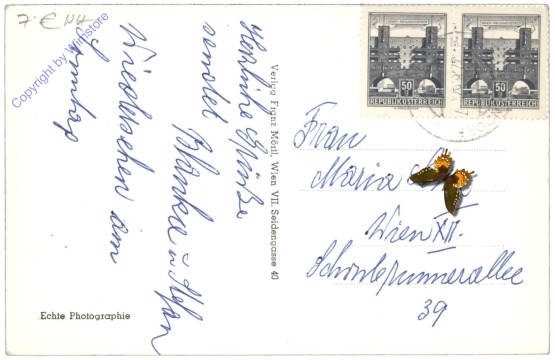 7.- € NH
Copyright by Winstore
Herzliche Grüße
sendet
Blanka u. Stefan
Wiedersehen am
Samstag
Verlag Franz Mörtl, Wien VII, Seidengasse 40
Echte Photographie
50 g
REPUBLIK ÖSTERREICH
50 g
REPUBLIK ÖSTERREICH
Frau
Maria
Wien XII.
Schönbrunnerallee
39